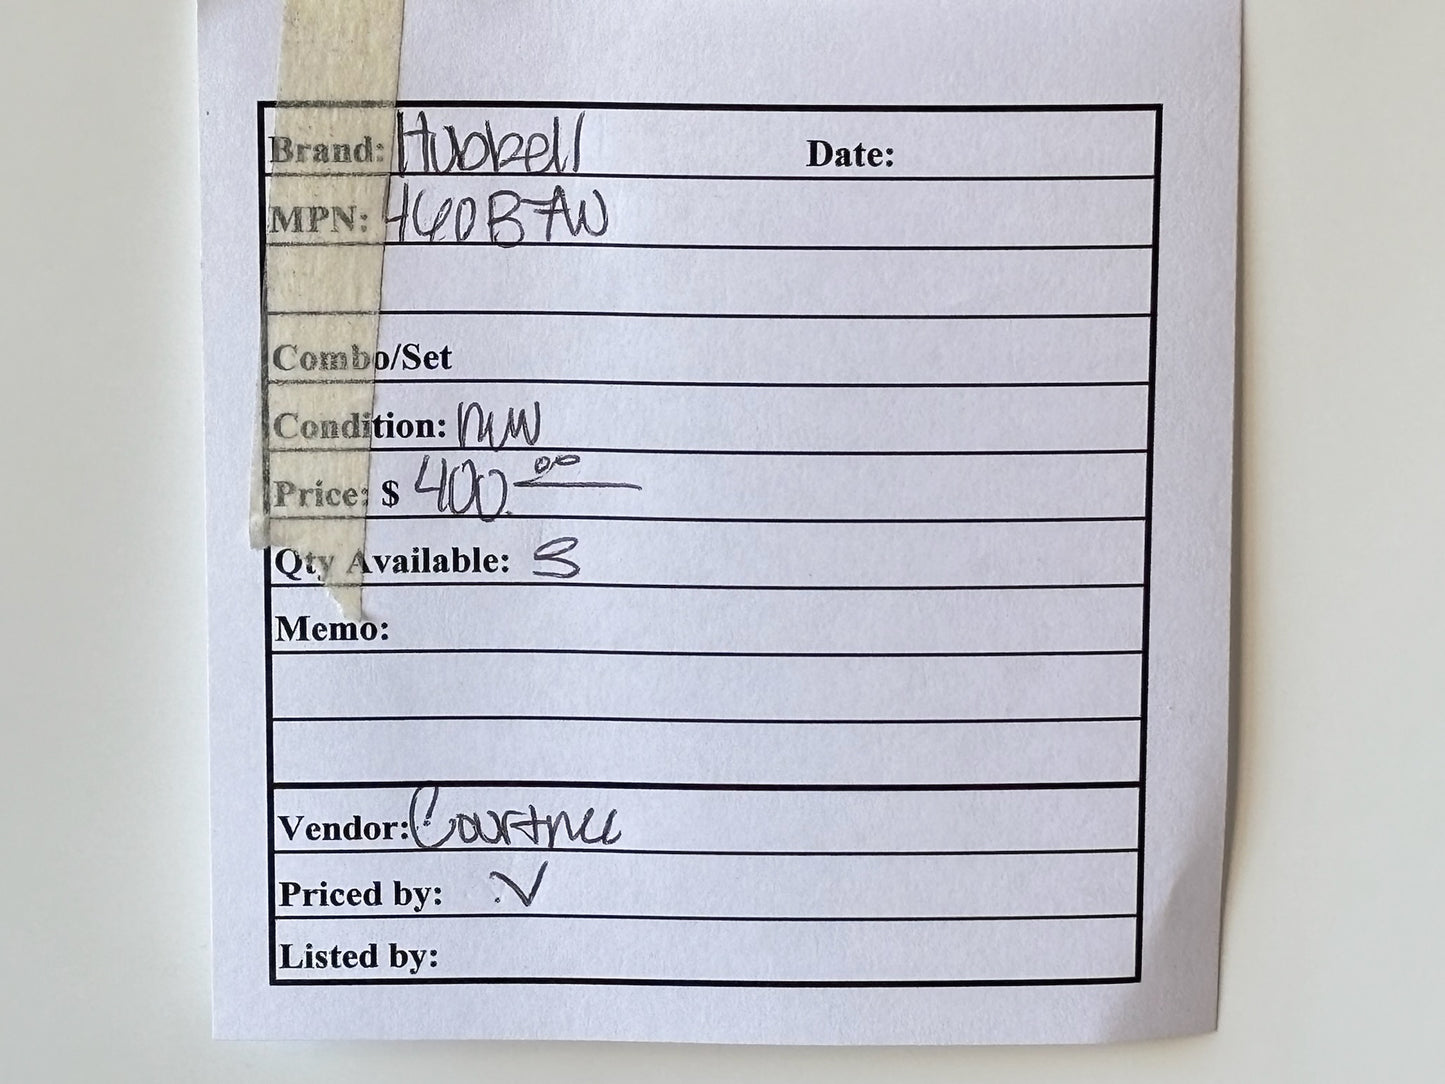 Brand: Hubbell Date:
MPN: 460B7W
Combo/Set
Condition: new
Price: $ 400.00
Qty Available: 3
Memo:
Vendor: Courtnee
Priced by: V
Listed by: